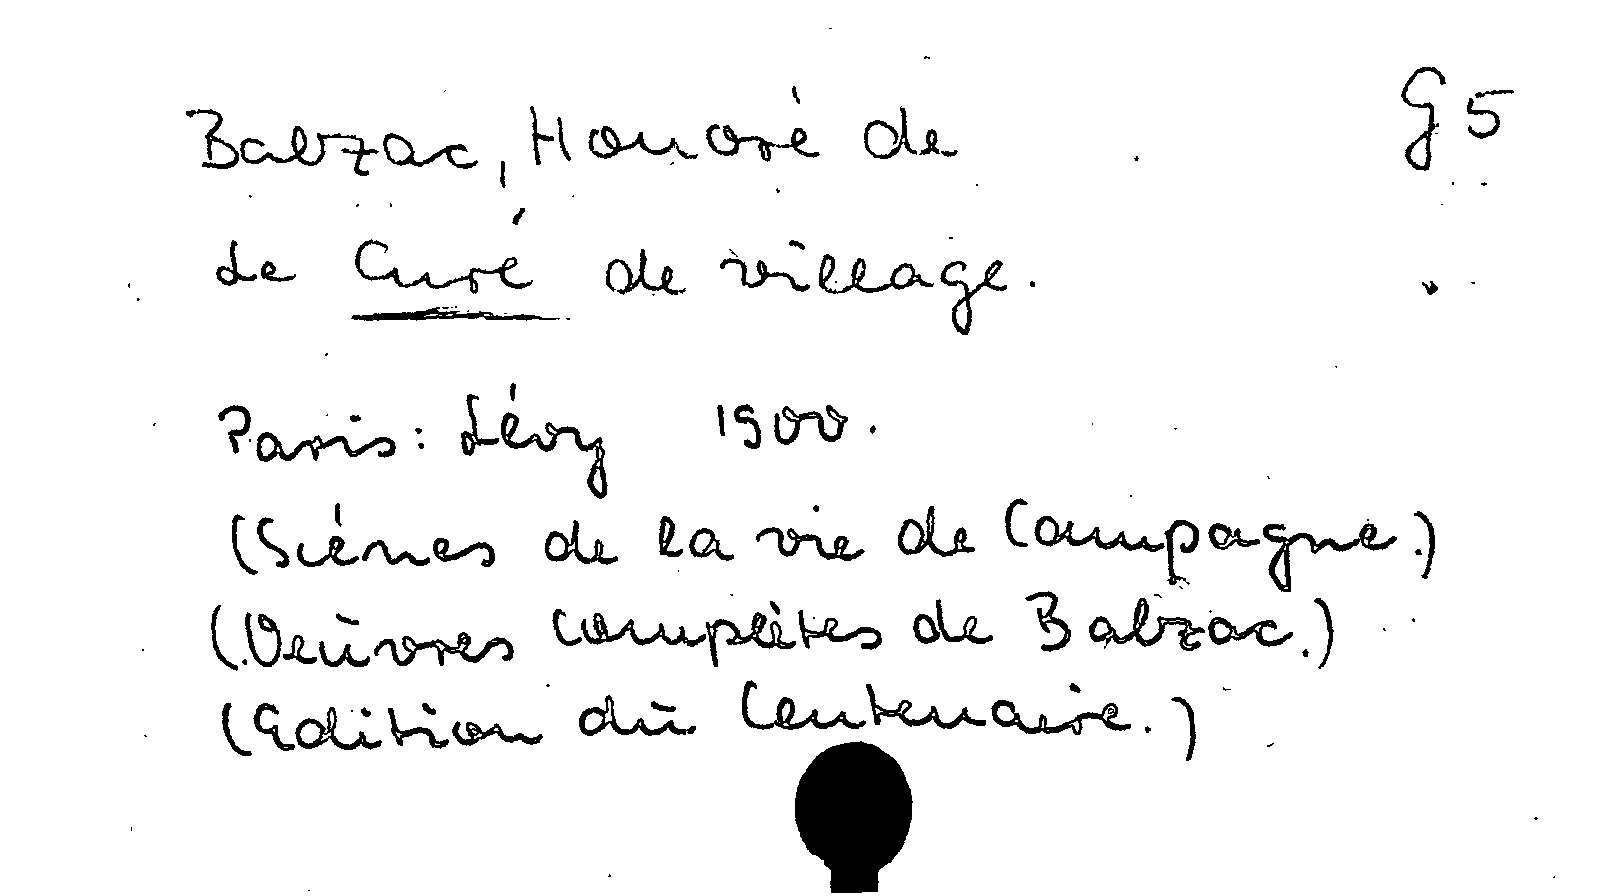 Balzac, Honoré de G 5
Le Curé de village.
Paris: Lévy 1900.
(Scènes de la vie de Campagne.)
(Oeuvres complètes de Balzac.)
(Edition du Centenaire.)